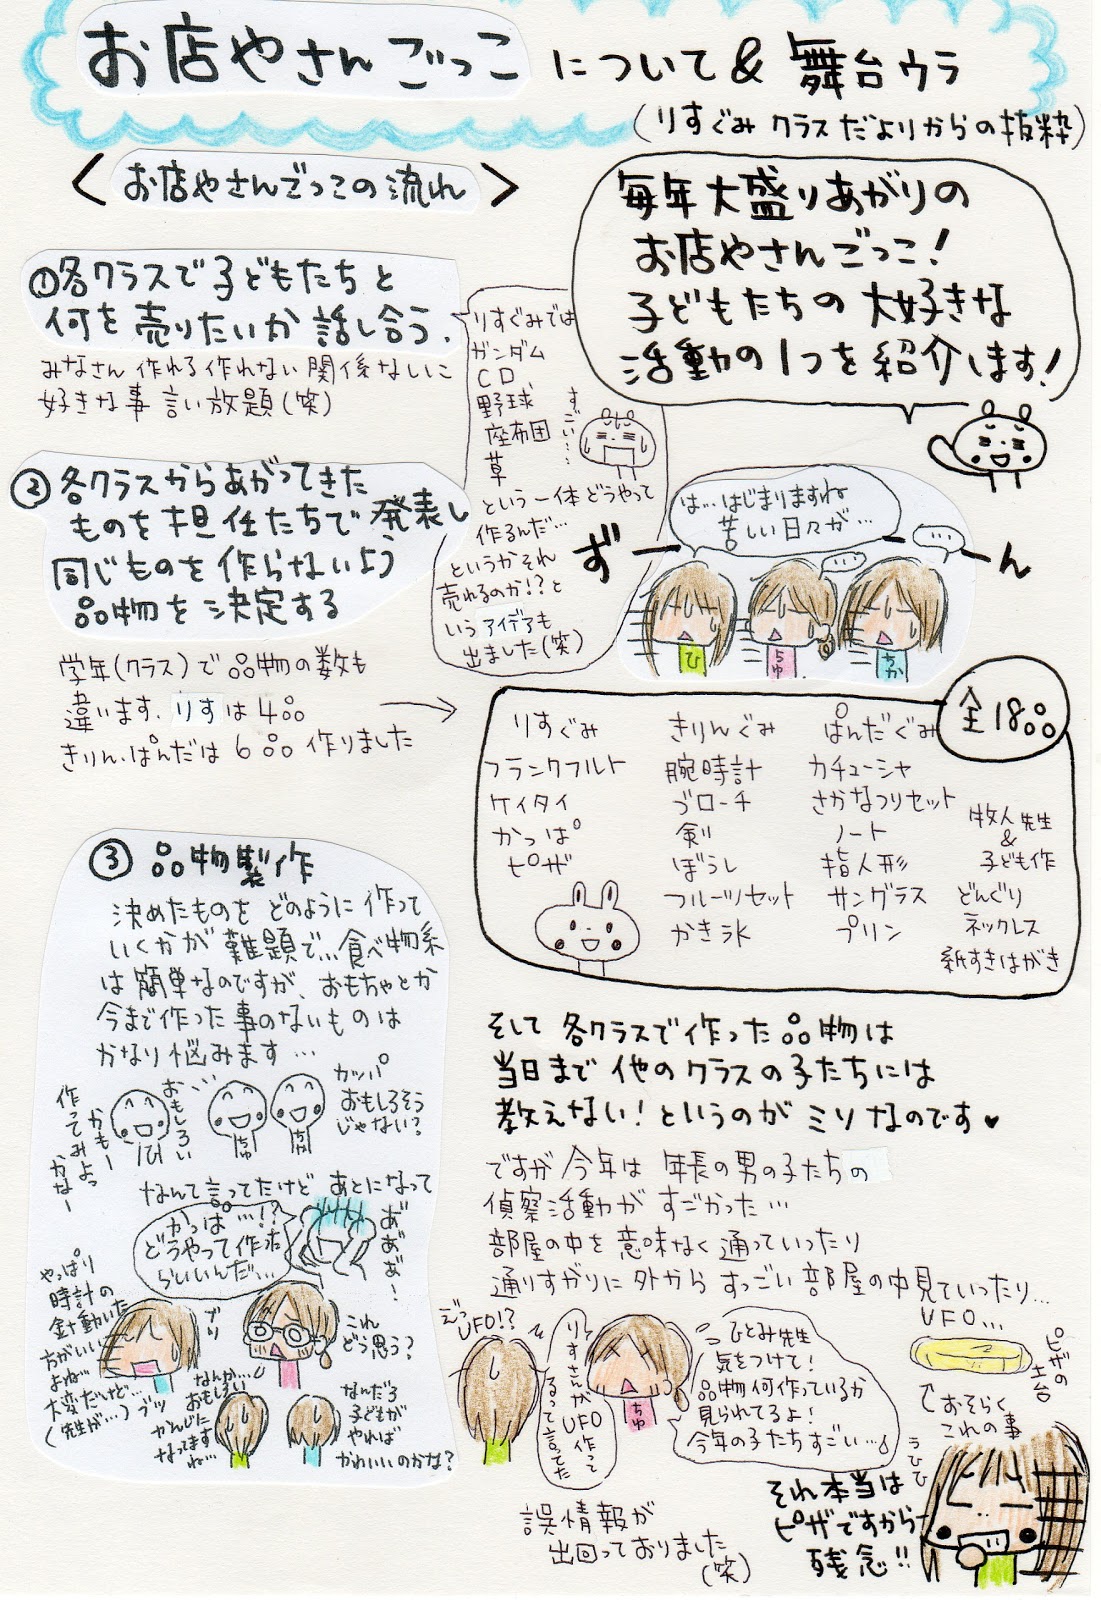 お店やさんごっこ について & 舞台ウラ
(りすぐみクラスだよりからの抜粋)
< お店やさんごっこの流れ >
毎年大盛りあがりの
お店やさんごっこ!
子どもたちの大好きな
活動の1つを紹介します!
①各クラスで子どもたちと
何を売りたいか話し合う.
みなさん作れる作れない関係ないに
好きな事言い放題(笑)
りすぐみでは
ガンダム
CD
野球
座布団
草
すごい…
という一体どうやって
作るんだ…
というかそれ
売れるのか!?と
いうアイデアも
出ました(笑)
②各クラスからあがってきた
ものを担任たちで発表し
同じものを作らないよう
品物を決定する
は…はじまりますね
苦しい日々が…
ずーーん
ひ
ちゅ
ちか
学年(クラス)で品物の数も
違います.りすは4品
きりん.ぱんだは6品作りました
全18品
りすぐみ
フランクフルト
ケイタイ
かっぱ
ピザ
きりんぐみ
腕時計
ブローチ
剣
ぼうし
フルーツセット
かき氷
ぱんだぐみ
カチューシャ
さかなつりセット
ノート
指人形
サングラス
プリン
牧人先生
&
子ども作
どんぐり
ネックレス
紙すきはがき
③品物製作
決めたものをどのように作って
いくかが難題で…食べ物系
は簡単なのですが、おもちゃとか
今まで作った事のないものは
かなり悩みます…
カッパ
おもしろそう
じゃない?
おもしろい
かもー
作ってみよっ
かなー
ひ
ちゅ
ちか
なんて言ってたけどあとになって
かっぱ…!?
どうやって作った
らいいんだ…
あ゛あ゛あ゛!
やっぱり
時計の
針動いた
方がいい
よね
大変だけど…
(先生が…)
ブツ
ブツ
これ
どう思う?
なんか…
おもしろい
かんじに
なってます
ね…
なんだろ
子どもが
やれば
かわいいのかな?
そして各クラスで作った品物は
当日まで他のクラスの子たちには
教えない!というのがミソなのです♥
ですが今年は年長の男の子たちの
偵察活動がすごかった…
部屋の中を意味なく通っていったり
通りすがりに外からすっごい部屋の中見ていったり…
えっ
UFO!?
りすさんがUFO作って
るって言ってた
ちゅ
ひとみ先生
気をつけて!
品物何作っているか
見られてるよ!
今年の子たちすごい…♪
UFO…
ピザの
土台
おそらく
これの事
うひひ
誤情報が
出回っておりました
(笑)
それ本当は
ピザですから
残念!!